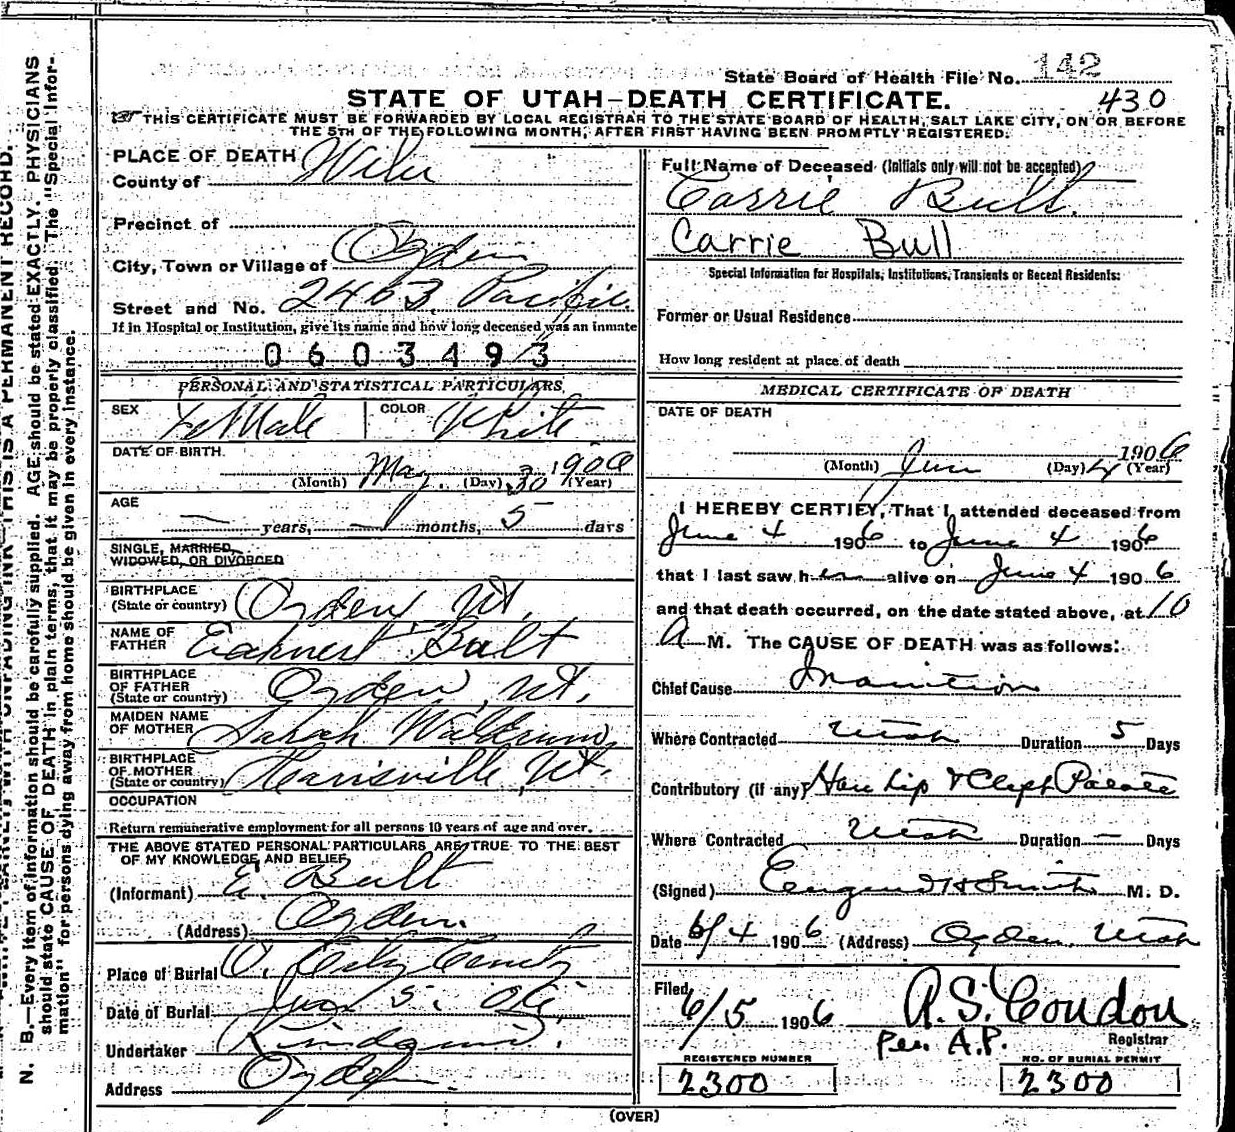 State Board of Health File No. 142
STATE OF UTAH—DEATH CERTIFICATE.
430
THIS CERTIFICATE MUST BE FORWARDED BY LOCAL REGISTRAR TO THE STATE BOARD OF HEALTH, SALT LAKE CITY, ON OR BEFORE
THE 5TH OF THE FOLLOWING MONTH, AFTER FIRST HAVING BEEN PROMPTLY REGISTERED.
PLACE OF DEATH
County of
Precinct of
City, Town or Village of Ogden
Street and No. 2463 Pacific.
If in Hospital or Institution, give its name and how long deceased was an inmate
0603493
PERSONAL AND STATISTICAL PARTICULARS
SEX FeMale COLOR White
DATE OF BIRTH.
May. 30 1906
(Month) (Day) (Year)
AGE
— years, — months, 5 days
SINGLE, MARRIED,
WIDOWED, OR DIVORCED
BIRTHPLACE
(State or country) Ogden, Ut.
NAME OF
FATHER
BIRTHPLACE
OF FATHER
(State or country) Ogden, Ut.
MAIDEN NAME
OF MOTHER Sarah
BIRTHPLACE
OF MOTHER
(State or country) Harrisville, Ut.
OCCUPATION
Return remunerative employment for all persons 10 years of age and over.
THE ABOVE STATED PERSONAL PARTICULARS ARE TRUE TO THE BEST
OF MY KNOWLEDGE AND BELIEF
(Informant) E. Bult
(Address) Ogden.
Place of Burial O. City Cemty
Date of Burial 5. 06.
Undertaker
Address Ogden.
Full Name of Deceased (Initials only will not be accepted)
Carrie Bult.
Carrie Bull
Special Information for Hospitals, Institutions, Transients or Recent Residents:
Former or Usual Residence
How long resident at place of death
MEDICAL CERTIFICATE OF DEATH
DATE OF DEATH
June 4 1906
(Month) (Day) (Year)
I HEREBY CERTIFY, That I attended deceased from
June 4 1906 to June 4 1906
that I last saw her alive on June 4 1906
and that death occurred, on the date stated above, at 10
A M. The CAUSE OF DEATH was as follows:
Chief Cause Inanition
Where Contracted Utah Duration 5 Days
Contributory (if any) Hare Lip & Cleft Palate
Where Contracted Utah Duration — Days
(Signed) Eugene H Smith M. D.
Date 6/4 1906 (Address) Ogden, Utah
Filed
6/5 1906 A.S. Condon
Per. A.P. Registrar
REGISTERED NUMBER
2300
NO. OF BURIAL PERMIT
2300
(OVER)
N. B.—Every item of information should be carefully supplied. AGE should be stated EXACTLY. PHYSICIANS
should state CAUSE OF DEATH in plain terms, that it may be properly classified. The "Special Infor-
mation" for persons dying away from home should be given in every instance.
THIS IS A PERMANENT RECORD.